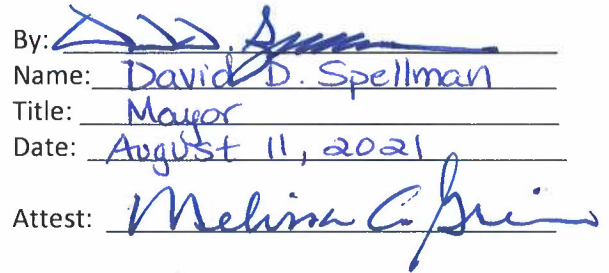 By:
Name: David D. Spellman
Title: Mayor
Date: August 11, 2021
Attest: Melissa